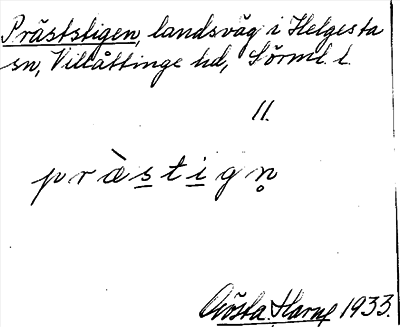 Präststigen, landsväg i Helgesta
sn, Villåttinge hd, Sörml. l.
11.
prä̀stign̥
Gösta Harne 1933.